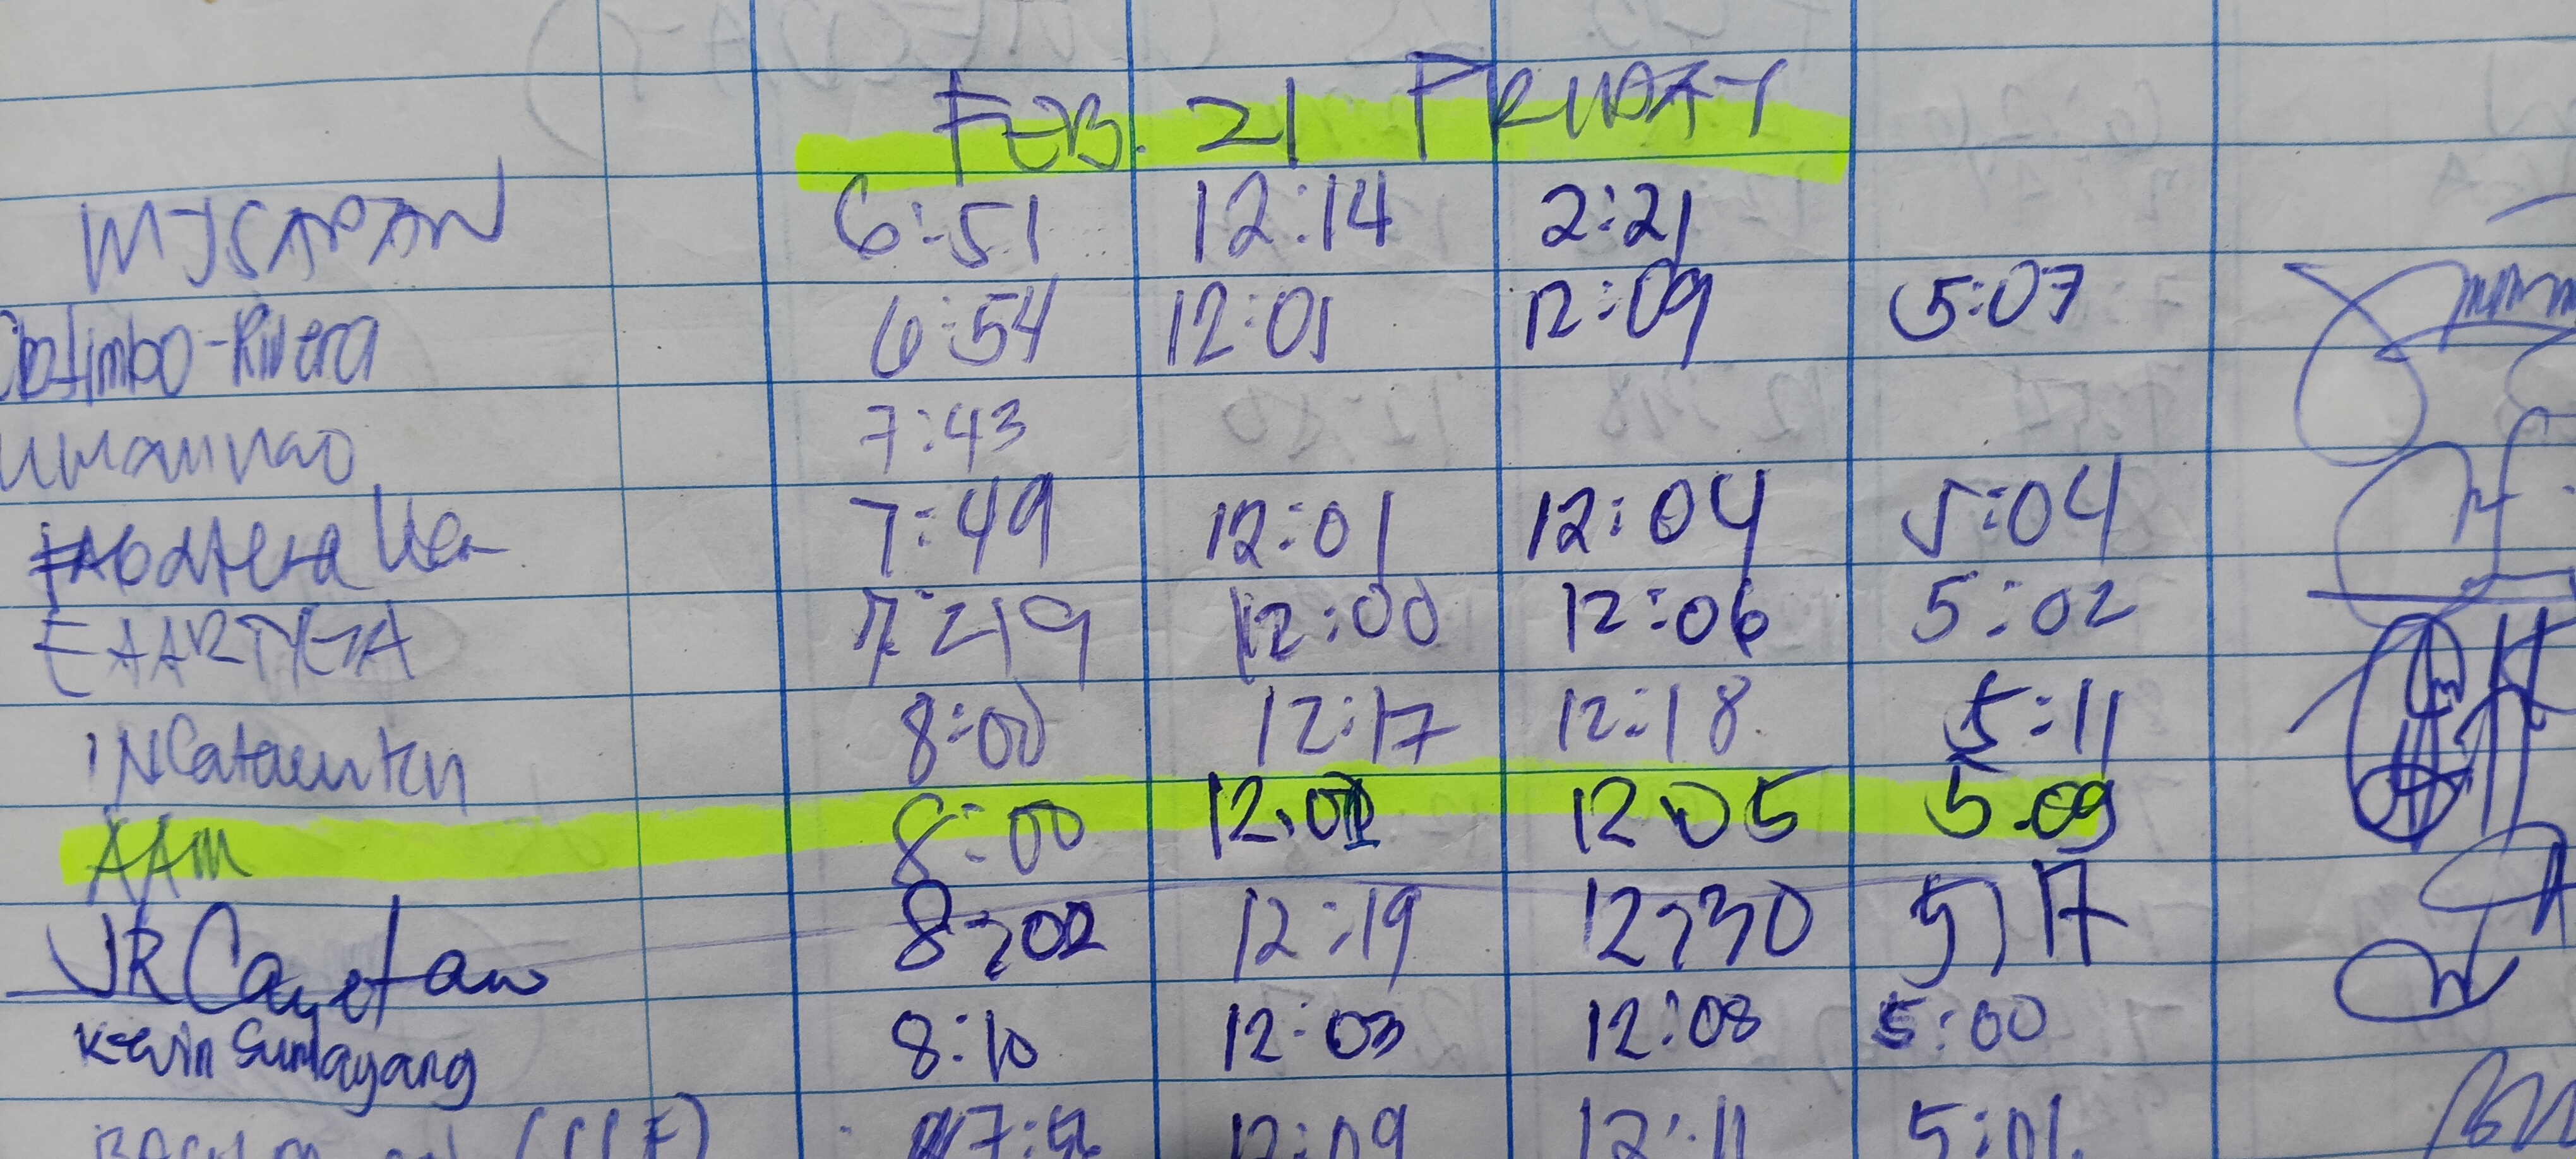 FEB. 21 FRIDAY
MJSAPAN 6:51 12:14 2:21
6:54 12:01 12:09 5:07
7:43
7:49 12:01 12:04 5:04
7:49 12:00 12:06 5:02
8:00 12:17 12:18 5:11
AAM 8:00 12.01 12:05 5.09
JR Cayetano 8:02 12:19 12:30 5:17
Kevin Sumlayang 8:10 12:03 12:08 5:00
12:09 12:11 5:01